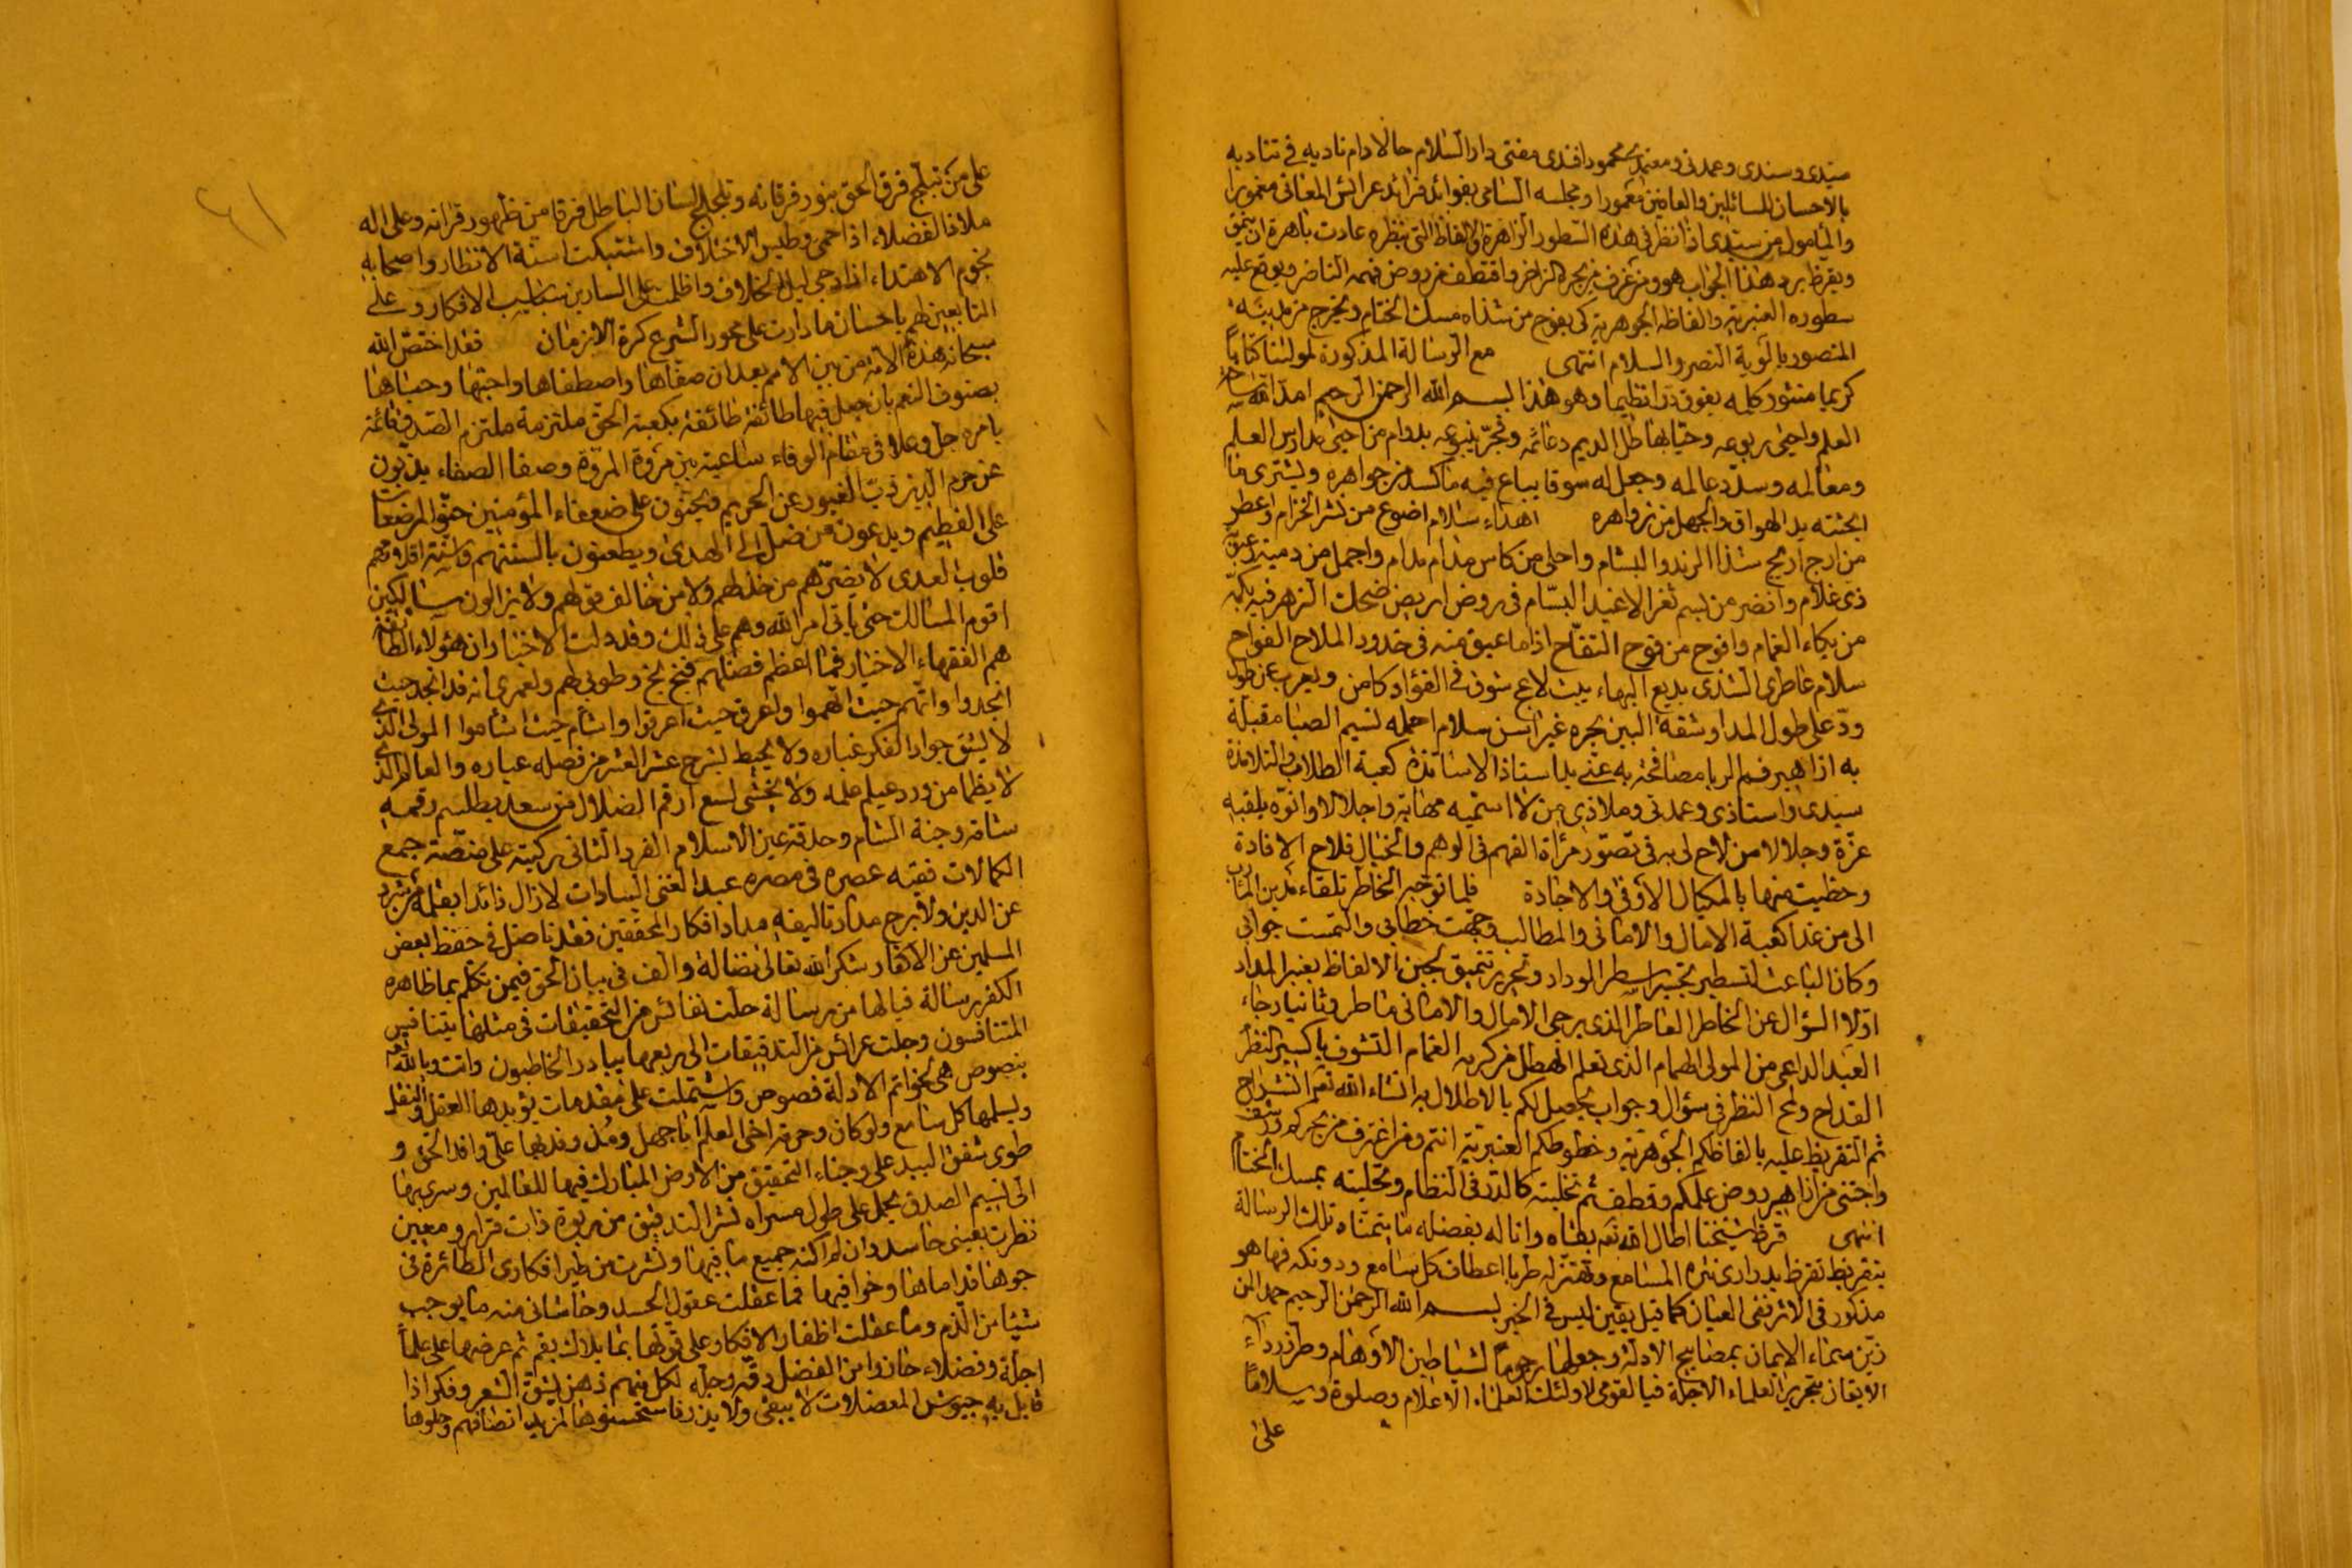 سيدى وسندى وعمدتى ومعتمدى محمود افندى مفتى دار السلام حالا دام ناديه فى تناديه
بالاحسان للسائلين والعافين معمورا ومجلسه السامى بفوائد فرائد عرائس المعانى مغمورا
والمأمول من سيدى اذا نظر فى هذه السطور الزاهرة والالفاظ التى بنظره عادت باهرة ان ينمق
ويقرظ برد هذا الجواب هو ومن غرف من بحره الزاخر واقتطف من روض فهمه الناضر ويوقع عليه
سطوره العنبرية والفاظه الجوهرية كى يفوح من شذاه مسك الختام ويخرج من
المنصور بالوية النصر والسلام انتهى مع الرسالة المذكورة لمولينا كتابا
كريما منثور كلمه يفوق درا نظيما وهو هذا بسم الله الرحمن الرحيم امد الله
العلم واحيى ربوعه وحيا بها طل الديم دعائمه وفجر ينبوعه بدوام من احيى مدارس العلم
ومعالمه وسدد عالمه وجعل له سوقا يباع فيه ما كسد من جواهره ويشترى ما
اجتثته يد الهوان والجهل من زواهره اهداء سلام اضوع من نشر الخزام واعطر
من ارج اريج شذا الرند والبشام واحلى من كاس مدام مدام واجمل من دمية
ذى غلام وانضر من بسم ثغر الاغيد البسام فى روض اريض ضحك الزهر فيه بكمه
من بكاء الغمام وافوح من فوح التفاح اذا ما عبق منه فى خدود الملاح الفواح
سلام عاطرى الشذى بديع البهاء يبث لاعج شوق فى الفؤاد كامن ويعرب عن طول
ود على طول المدا وشقة البين بحره غير آسن سلام احمله نسيم الصبا مقبلة
به ازاهير فم الربا مصافحة به عنى يد استاذ الاساتذة كعبة الطلاب والتلامذة
سيدى واستاذى وعمدتى وملاذى من لا اسميه مهابة واجلالا وانوه بلقبه
عزة وجلالا من لاح لى به فى تصور مرآة الفهم فى الوهم والخيال فلاح الافادة
وحظيت منها بالمكيال الاوفى والاجادة فلما توجه الخاطر تلقاء مدين المآرب
الى من غدا كعبة الامال والامانى والمطالب وجهت خطابى والتمست جوابى
وكان الباعث لتسطير اسطر الوداد وتحرير تنميق لجين الالفاظ بعنبر المداد
اولا السؤال عن الخاطر العاطر الذى يرجى الامال والامانى ماطر وثانيا رجاء
العبد الداعى من المولى الهمام الذى تعلم الهطل من كرمه الغمام التشوف باكسير النظر
القداح ولمح النظر فى سؤال وجواب يحصل لكم بالاطلال به انشاء الله تعه انشراح
ثم التقريظ عليه بالفاظكم الجوهرية وخطوطكم العنبرية انتم ومن اغترف من بحركم
واجتنى من ازاهير روض علمكم وقطف ثم تحليته كالدر فى النظام وتحليته بمسك الختام
انتهى قرظ شيخنا اطال الله تعه بقاه وانا له بفضله ما يتمناه تلك الرسالة
بتقريظ تقرظ بدرارى نثره المسامع وتهتز له طربا اعطاف كل سامع ودونكه فها هو
مذكور فى الاثر ففى العيان كما قيل يقين ليس فى الخبر بسم الله الرحمن الرحيم حمدا لمن
زين سماء الايمان بمصابيح الادلة وجعلها رجوما لشياطين الاوهام وطرز رداء
الايقان بتحرير العلماء الاجلة فيا لقومى لاولئك العلماء الاعلام وصلوة وسلاما
على
على من تبلج فرق الحق بنور فرقانه وتلجلج لسان الباطل فرقا من ظهور قرآنه وعلى اله
ملاذ الفضلاء اذا حمى وطيس الاختلاف واشتبكت اسنة الانظار واصحابه
نجوم الاهتداء اذا دجى ليل الخلاف واظلمت على السارين الافكار وعلى
التابعين لهم باحسان ما دارت على محور الشرع كرة الازمان فقد اختص الله
سبحانه هذه الامة من بين الامم بعد ان صفاها واصطفاها واجتباها وحباها
بصنوف النعم بان جعل فيها طائفة طائفة بكعبة الحق ملتزمة ملتزم الصدق قائمة
بامره جل وعلا فى مقام الوفاء ساعية بين مروة المروة وصفا الصفاء يذبون
عن حرم الدين ذب الغيور عن الحريم ويحنون على ضعفاء المؤمنين حنو المرضعات
على الفطيم ويدعون من ضل الى الهدى ويطعنون بالسنتهم واسنة اقلامهم
قلوب العدى لا يضرهم من خذلهم ولا من خالف قولهم ولا يزالون سالكين
اقوم المسالك حتى ياتى امر الله وهم على ذلك وقد دلت الاخبار ان هؤلاء الطائفة
هم الفقهاء الاخيار فما اعظم فضلهم فبخ بخ وطوبى لهم ولعمرى انه قد انجد حيث
انجدوا واتهم حيث اتهموا واعرق حيث اعرقوا واشأم حيث اشأموا المولى الذى
لا يشق جواد الفكر غباره ولا يحيط بشرح عشر العشر من فضله عباره والعالم الذى
لا يظما من ورد عيلم علمه ولا يخشى لسع ارقم الضلال من سعد بطلسم رقمه
شامة وجنة الشام وحدقة عين الاسلام الفرد الثانى ركبته على منصة جميع
الكمالات فقيه عصره فى مصره عبد الغنى السادات لا زال ذائدا بقلمه
عن الدين ولا برح مداد تاليفه مداد افكار المحققين فقد ناضل فى حفظ بعض
المسلمين عن الاكفار شكر الله تعالى نضاله والف فى بيان الحق فيمن تكلم بما ظاهره
الكفر رسالة فيا لها من رسالة حلت نفائس من التحقيقات فى مثلها يتنافس
المتنافسون وجلت عرائس من التدقيقات الى ربعها يبادر الخاطبون واتت وبالله تعه
بنصوص هى لخواتم الادلة فصوص واشتملت على مقدمات يؤيدها العقل والنقل
ويسلمها كل سامع ولو كان وحرمة اخى العلم ابا جهل
طوى شقق البيد على وجناء التحقيق من الارض المبارك فيها للعالمين وسرى بها
الى نسيم الصدق يحمل على طول مسراه نشر التدقيق من ربوة ذات قرار ومعين
نظرت بعينى حاسد وان لم اكنه جميع ما فيها ونشرت من طير افكارى الطائرة فى
جوها قداماها وخوافيها فما عقلت عقول الحسد وحاشانى منه ما يوجب
شيئا من الذم وما عقلت اظفار الافكار على قولها بما ثم عرضها على علماء
اجلة وفضلاء حازوا من الفضل دقه وجله لكل منهم ذهن يشق الشعر وفكر اذا
قابل به جيوش المعضلات لا يبقى ولا يذر فاستحسنوها لمزيد انصافهم وحلوها